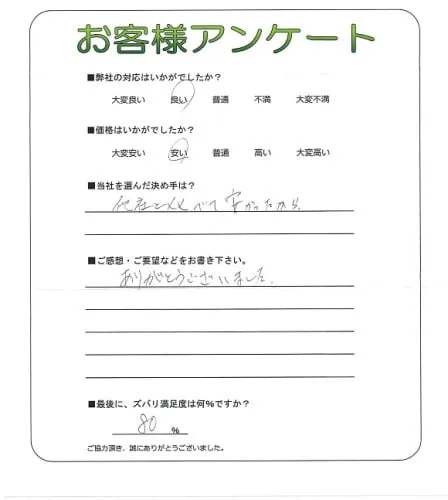 お客様アンケート
■弊社の対応はいかがでしたか？
大変良い 良い 普通 不満 大変不満
■価格はいかがでしたか？
大変安い 安い 普通 高い 大変高い
■当社を選んだ決め手は？
他社と比べて安かったから。
■ご感想・ご要望などをお書き下さい。
ありがとうございました。
■最後に、ズバリ満足度は何％ですか？
80 ％
ご協力頂き、誠にありがとうございました。